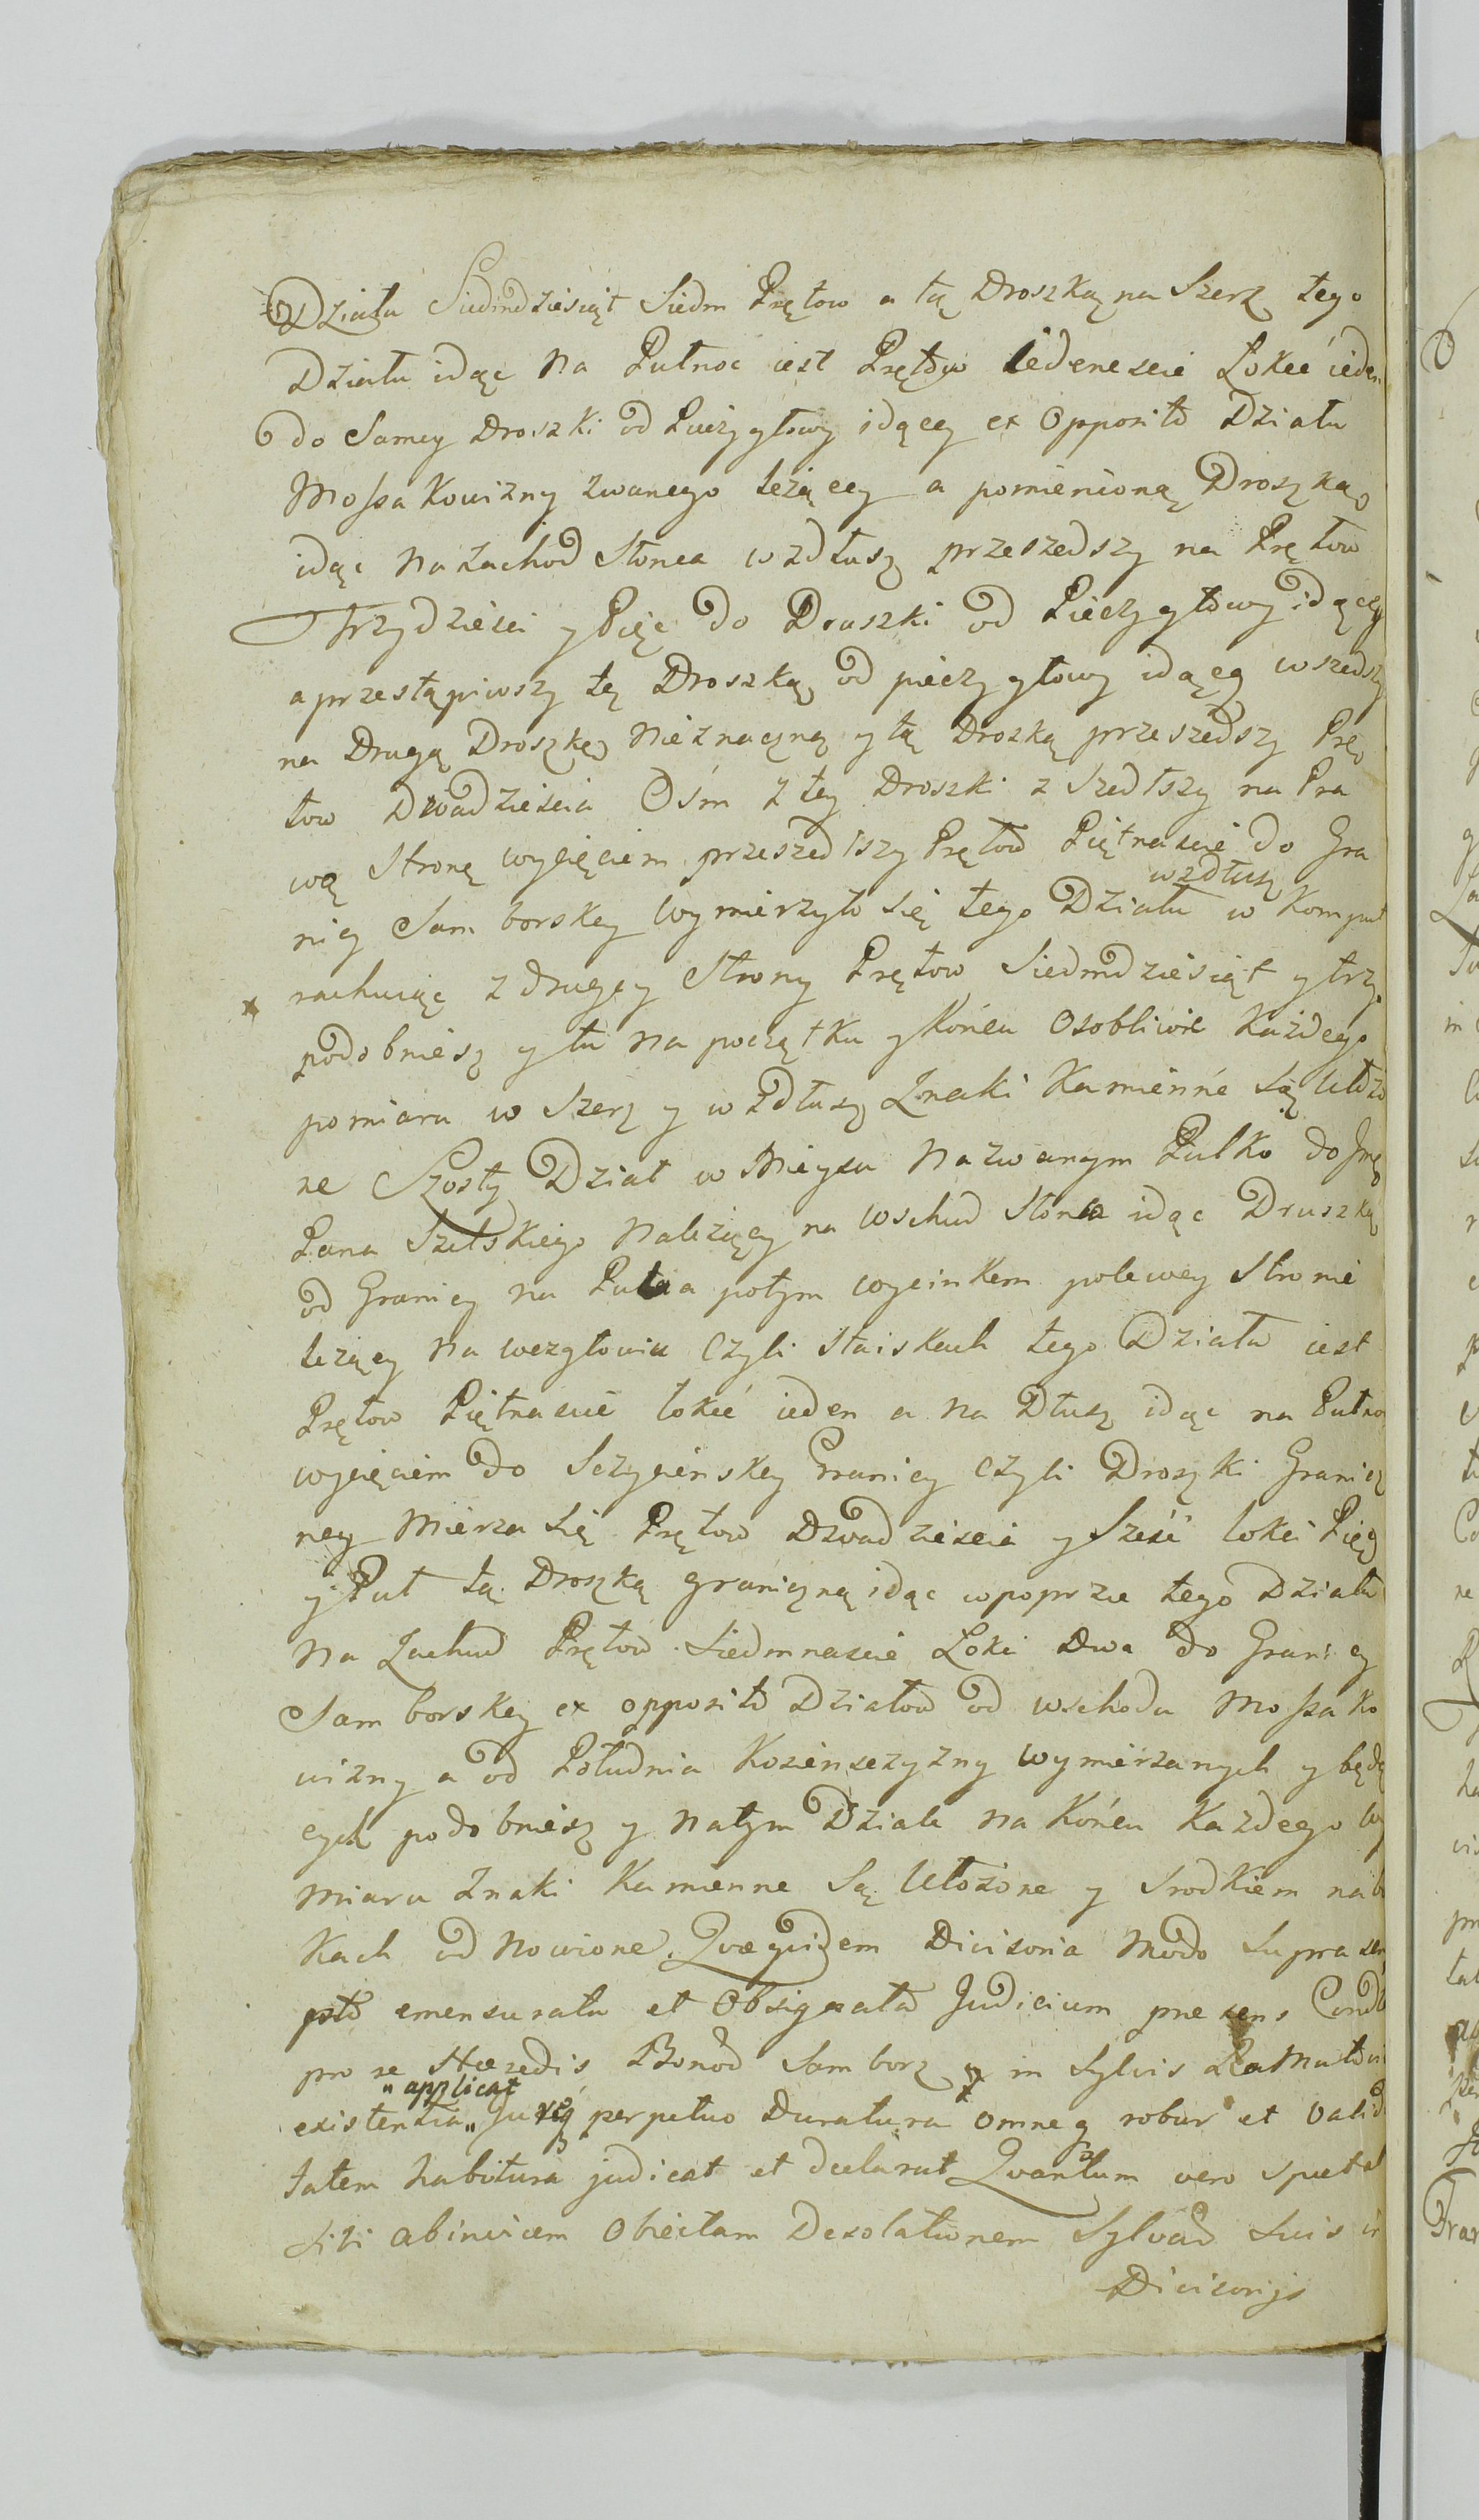 Działu Siedmdziesiąt Siedm Prętow a tą Droszką na Szerz tego
Działu idąc na Pułnoc iest Prętow iedenescie Łokeć ieden
do Samey Droszki od Pieczygłowy idącey ex Opposito Działu
Mossakowizny zwanego leżącey a pomienioną Droszką
idąc na Zachod Słonca wzdłusz przeszedszy na Prętow
Trzydziesci y Pięc do Druszki od Pieczygłowy idącey
a przestąpiwszy tę Droszkę od pieczygłowy idącą wszedszy
na Drugą Droszkę nieznaczną y tą Droszką przeszedszy Prę
tow Dwadziescia Ośm z tey Droszki zszedłszy na Pra
wą Stronę wycięciem przeszedłszy Prętow Piętnascie do Gra
wzdłusz
nicy Samborskey wymierzyło się tego Działu w Komput
rachuiąc z drugey Strony Prętow Siedmdziesiąt y trzy
podobniesz y tu na początku y Końcu Osobliwie Każdego
pomiaru w Szerz y w zdłusz Znaki Kamienne są Ułożo
ne Szosty Dział w Mieyscu Nazwanym Pulko do Jmę
Pana Szelskiego Należący na wschud Słonca idąc Druszką
od Granicy na potym wycinkem polewey Stronie
leżący na wezgłowiu Czyli Staiskach tego Działu iest
Prętow Piętnascie łokeć ieden a na Dłusz idąc na Pułno
wycięciem do Sczycienskey Granicy Czyli Droszki Granicz
ney Mierza Się Prętow Dwadziescia y Sześć łokci Pięc
y Puł tą Droszką graniczną idąc wpoprze tego Działu
na Zachud Prętow Siedmnascie Łokci Dwa do Granicy
Samborskey ex opposito Działow od wschodu Mossako
wizny a od Południa Koziensczyzny wymierzanych y będą
cych podobniesz y natym Dziale na Końcu Każdego wy
miaru Znaki Kamienne Są Ułożone y Srodkiem na
kach odnowione. Quae quidem Divisoria modo supra scri
pto emensurata et Obsignata Judicium praesens Cond
pro se Haeredis Bonod Samborz in Sylvis
„applicat
existentia „ Juriq perpetuo Duratura omneq robur et Valid
tatem habitura judicat et declarat Quantum vero spectat
sibi abinvicem Obiectam Desolationem Sylvad Suis in
Divisorijs